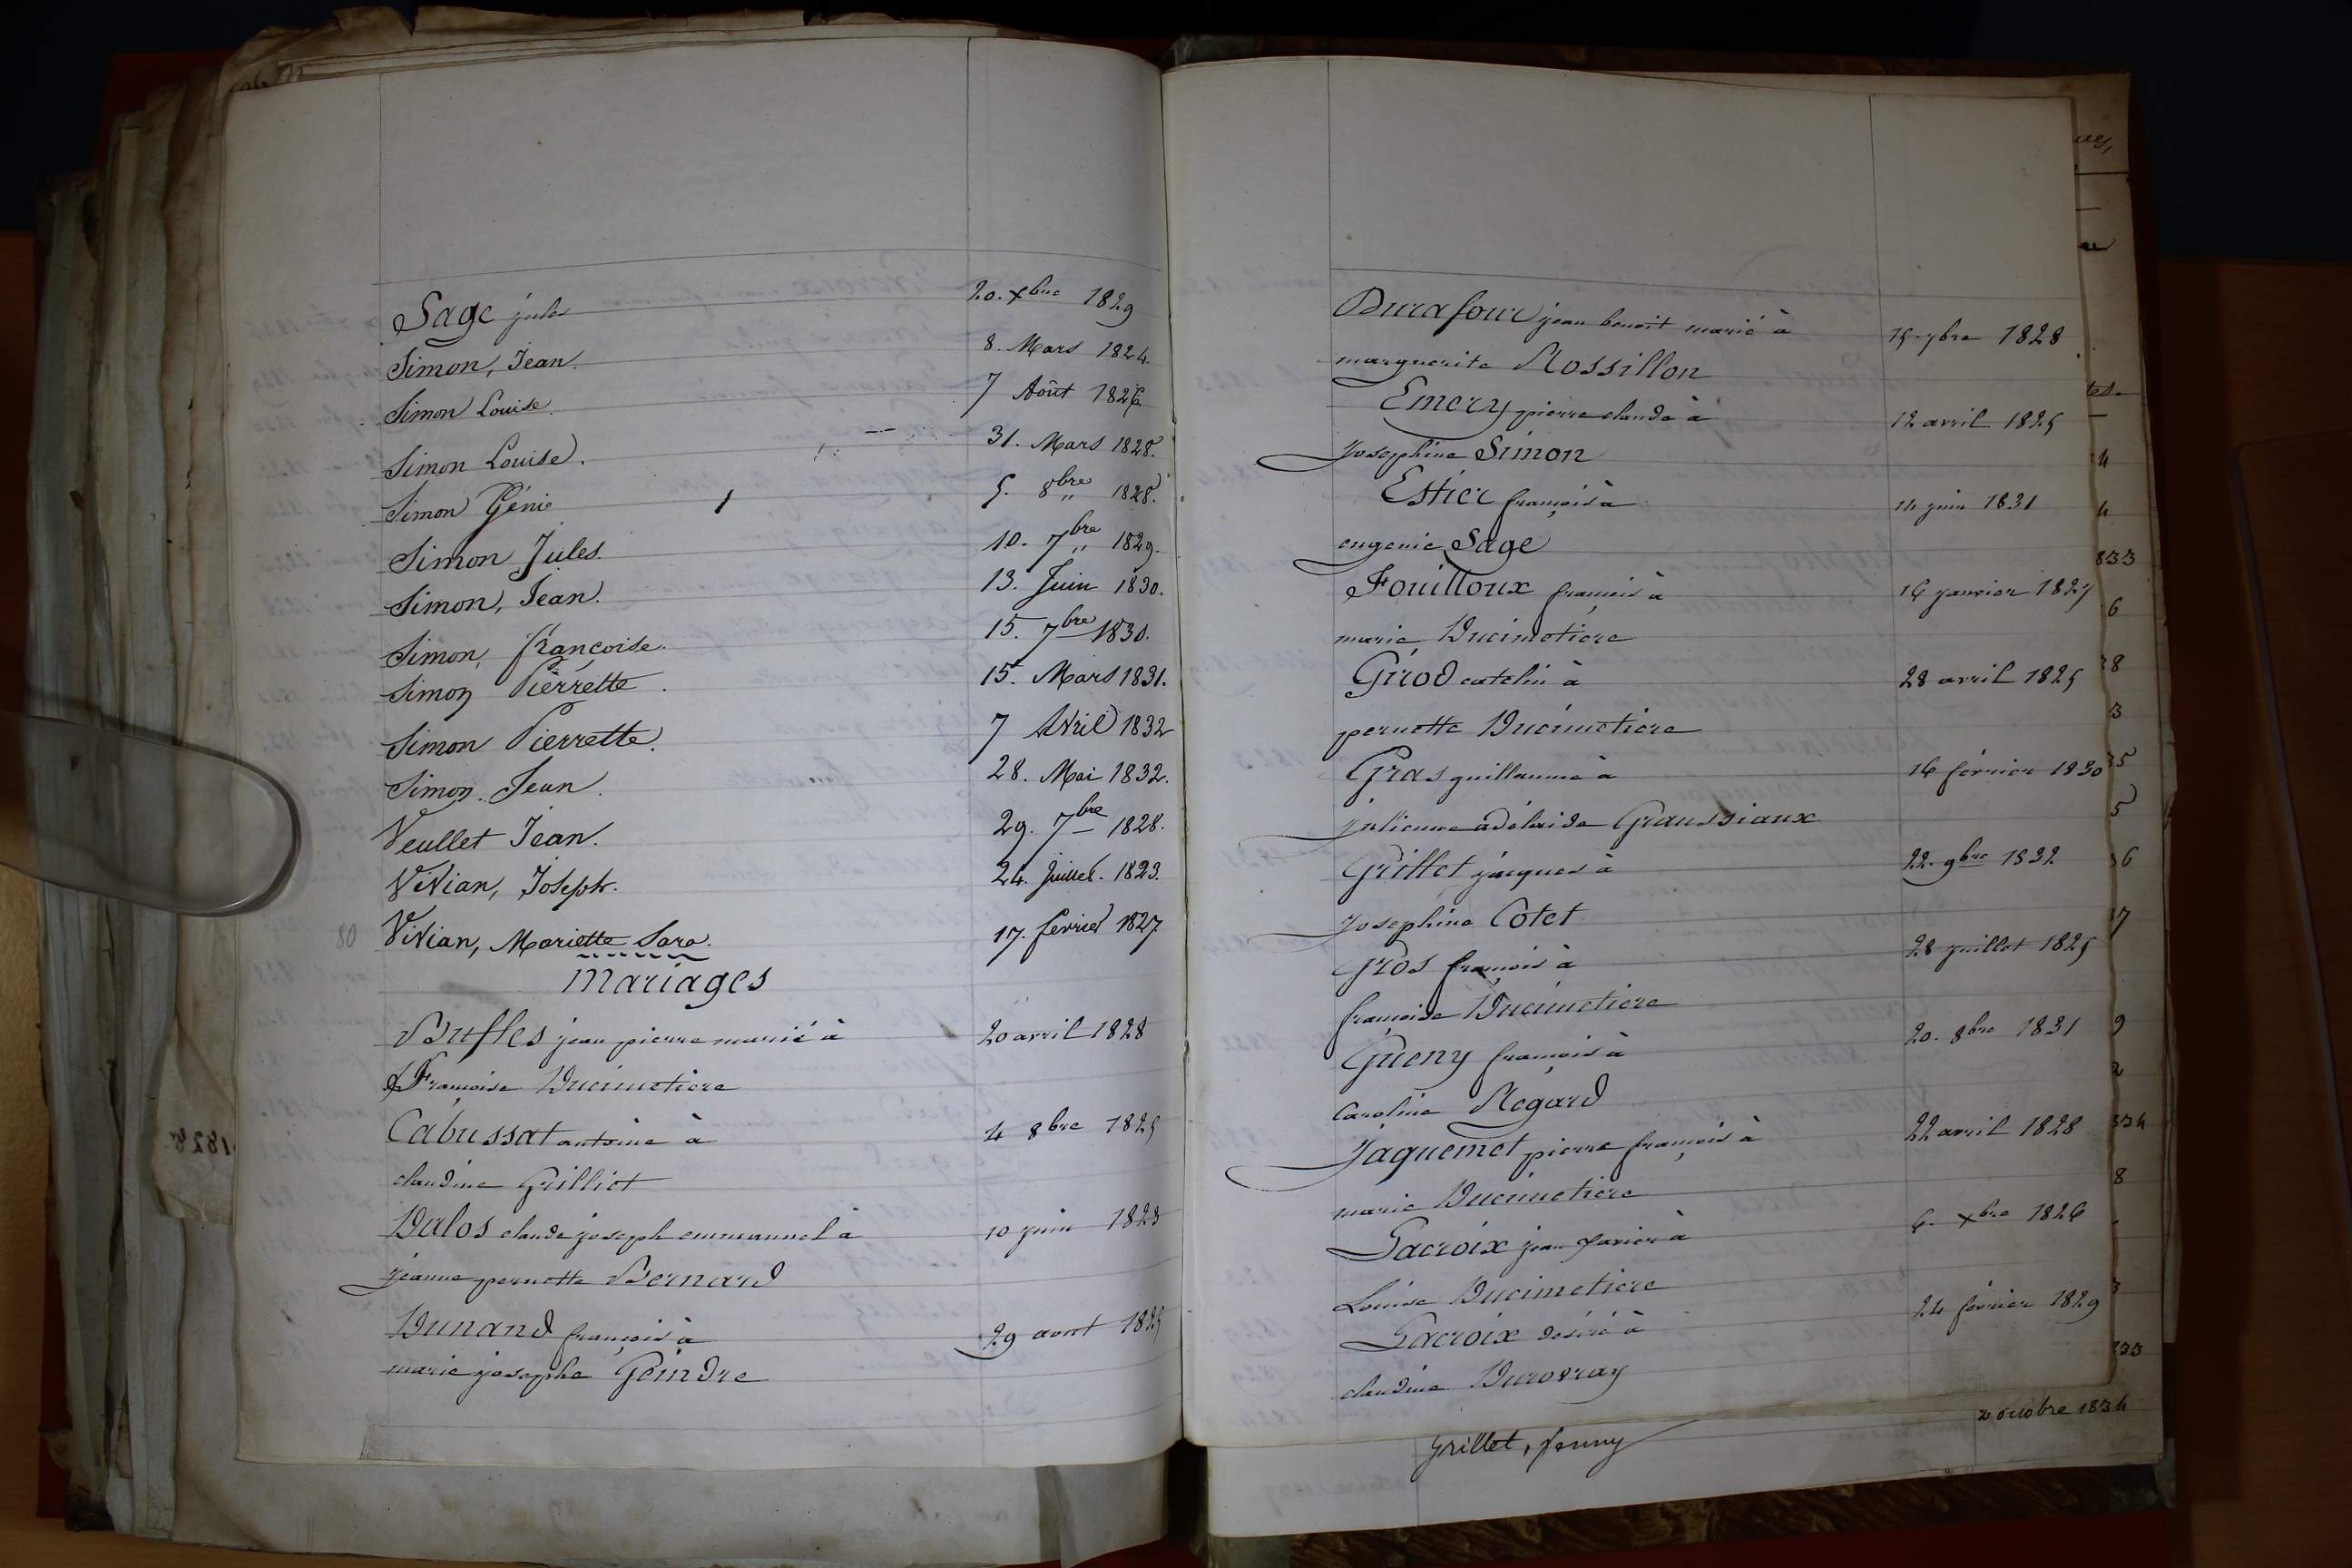 Sage jules 20. xbre 1829
Simon, Jean. 8. Mars 1824.
Simon Louise. 7 Août 1826.
Simon Louise. 31. Mars 1828.
Simon Génie 5. 8bre 1828.
Simon Jules. 10. 7bre 1829.
Simon, Jean. 13. Juin 1830.
Simon, françoise. 15. 7bre 1830.
Simon Pierrette. 15. Mars 1831.
Simon Pierrette. 7 Avril 1832
Simon. Jean. 28. Mai 1832.
Veullet Jean. 29. 7bre 1828.
Vivian, Joseph. 24. Juillet. 1823.
80 Vivian, Mariette Sara. 17. fevrier 1827
Mariages
Buffles jean pierre marié à 20 avril 1828
Françoise Ducimetiere
Cabussat antoine à 4 8bre 1825
claudine Grilliet
Dalos claude joseph emmanuel à 10 juin 1828
jeanne pernette Bernard
Dunand françois à 29 aout 1825
marie josephe Geindre
Durafour jean benoit marié à 15. 7bre 1828
marguerite Rossillon
Emery pierre claude à 12 avril 1825
Josephine Simon
Estier françois à 14 juin 1831
eugenie Sage
Fouilloux françois à 16 janvier 1827
marie Ducimetiere
Girod catelin à 28 avril 1825
pernette Ducimetiere
Gras guillaume à 16 février 1830
julienne adélaide Graussiaux
Grillet jaques à 22. 9bre 1832
Josephine Cotet
Gros françois à 28 juillet 1825
françoise Ducimetiere
Gueny françois à 20. 8bre 1831
Caroline Regard
Jaquemet pierre françois à 22 avril 1828
marie Ducimetiere
Lacroix jean xavier à 6. xbre 1826
Louise Ducimetiere
Lacroix desiré à 24 février 1829
claudine Durovray
Grillet, fanny 2 octobre 1834